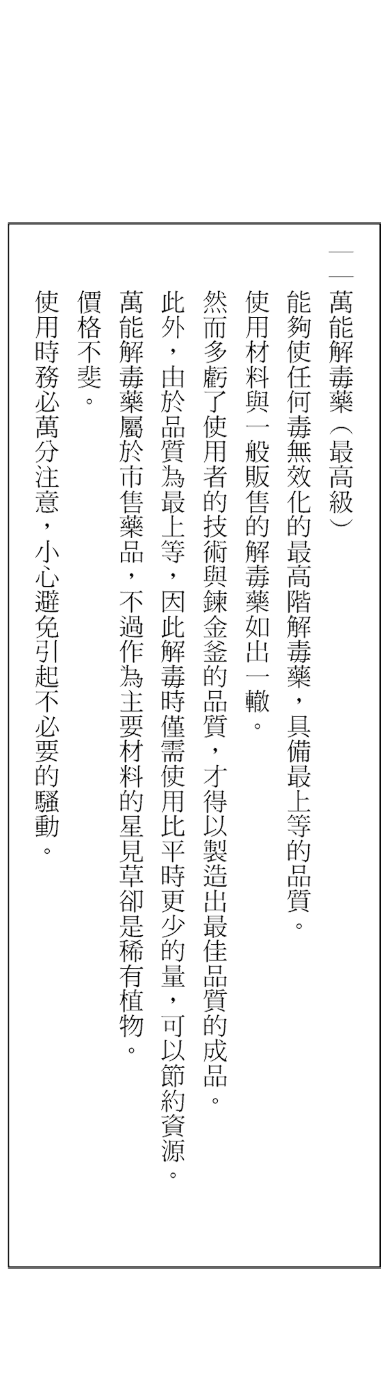 ——萬能解毒藥（最高級）
能夠使任何毒無效化的最高階解毒藥，具備最上等的品質。
使用材料與一般販售的解毒藥如出一轍。
然而多虧了使用者的技術與鍊金釜的品質，才得以製造出最佳品質的成品。
此外，由於品質為最上等，因此解毒時僅需使用比平時更少的量，可以節約資源。
萬能解毒藥屬於市售藥品，不過作為主要材料的星見草卻是稀有植物。
價格不斐。
使用時務必萬分注意，小心避免引起不必要的騷動。